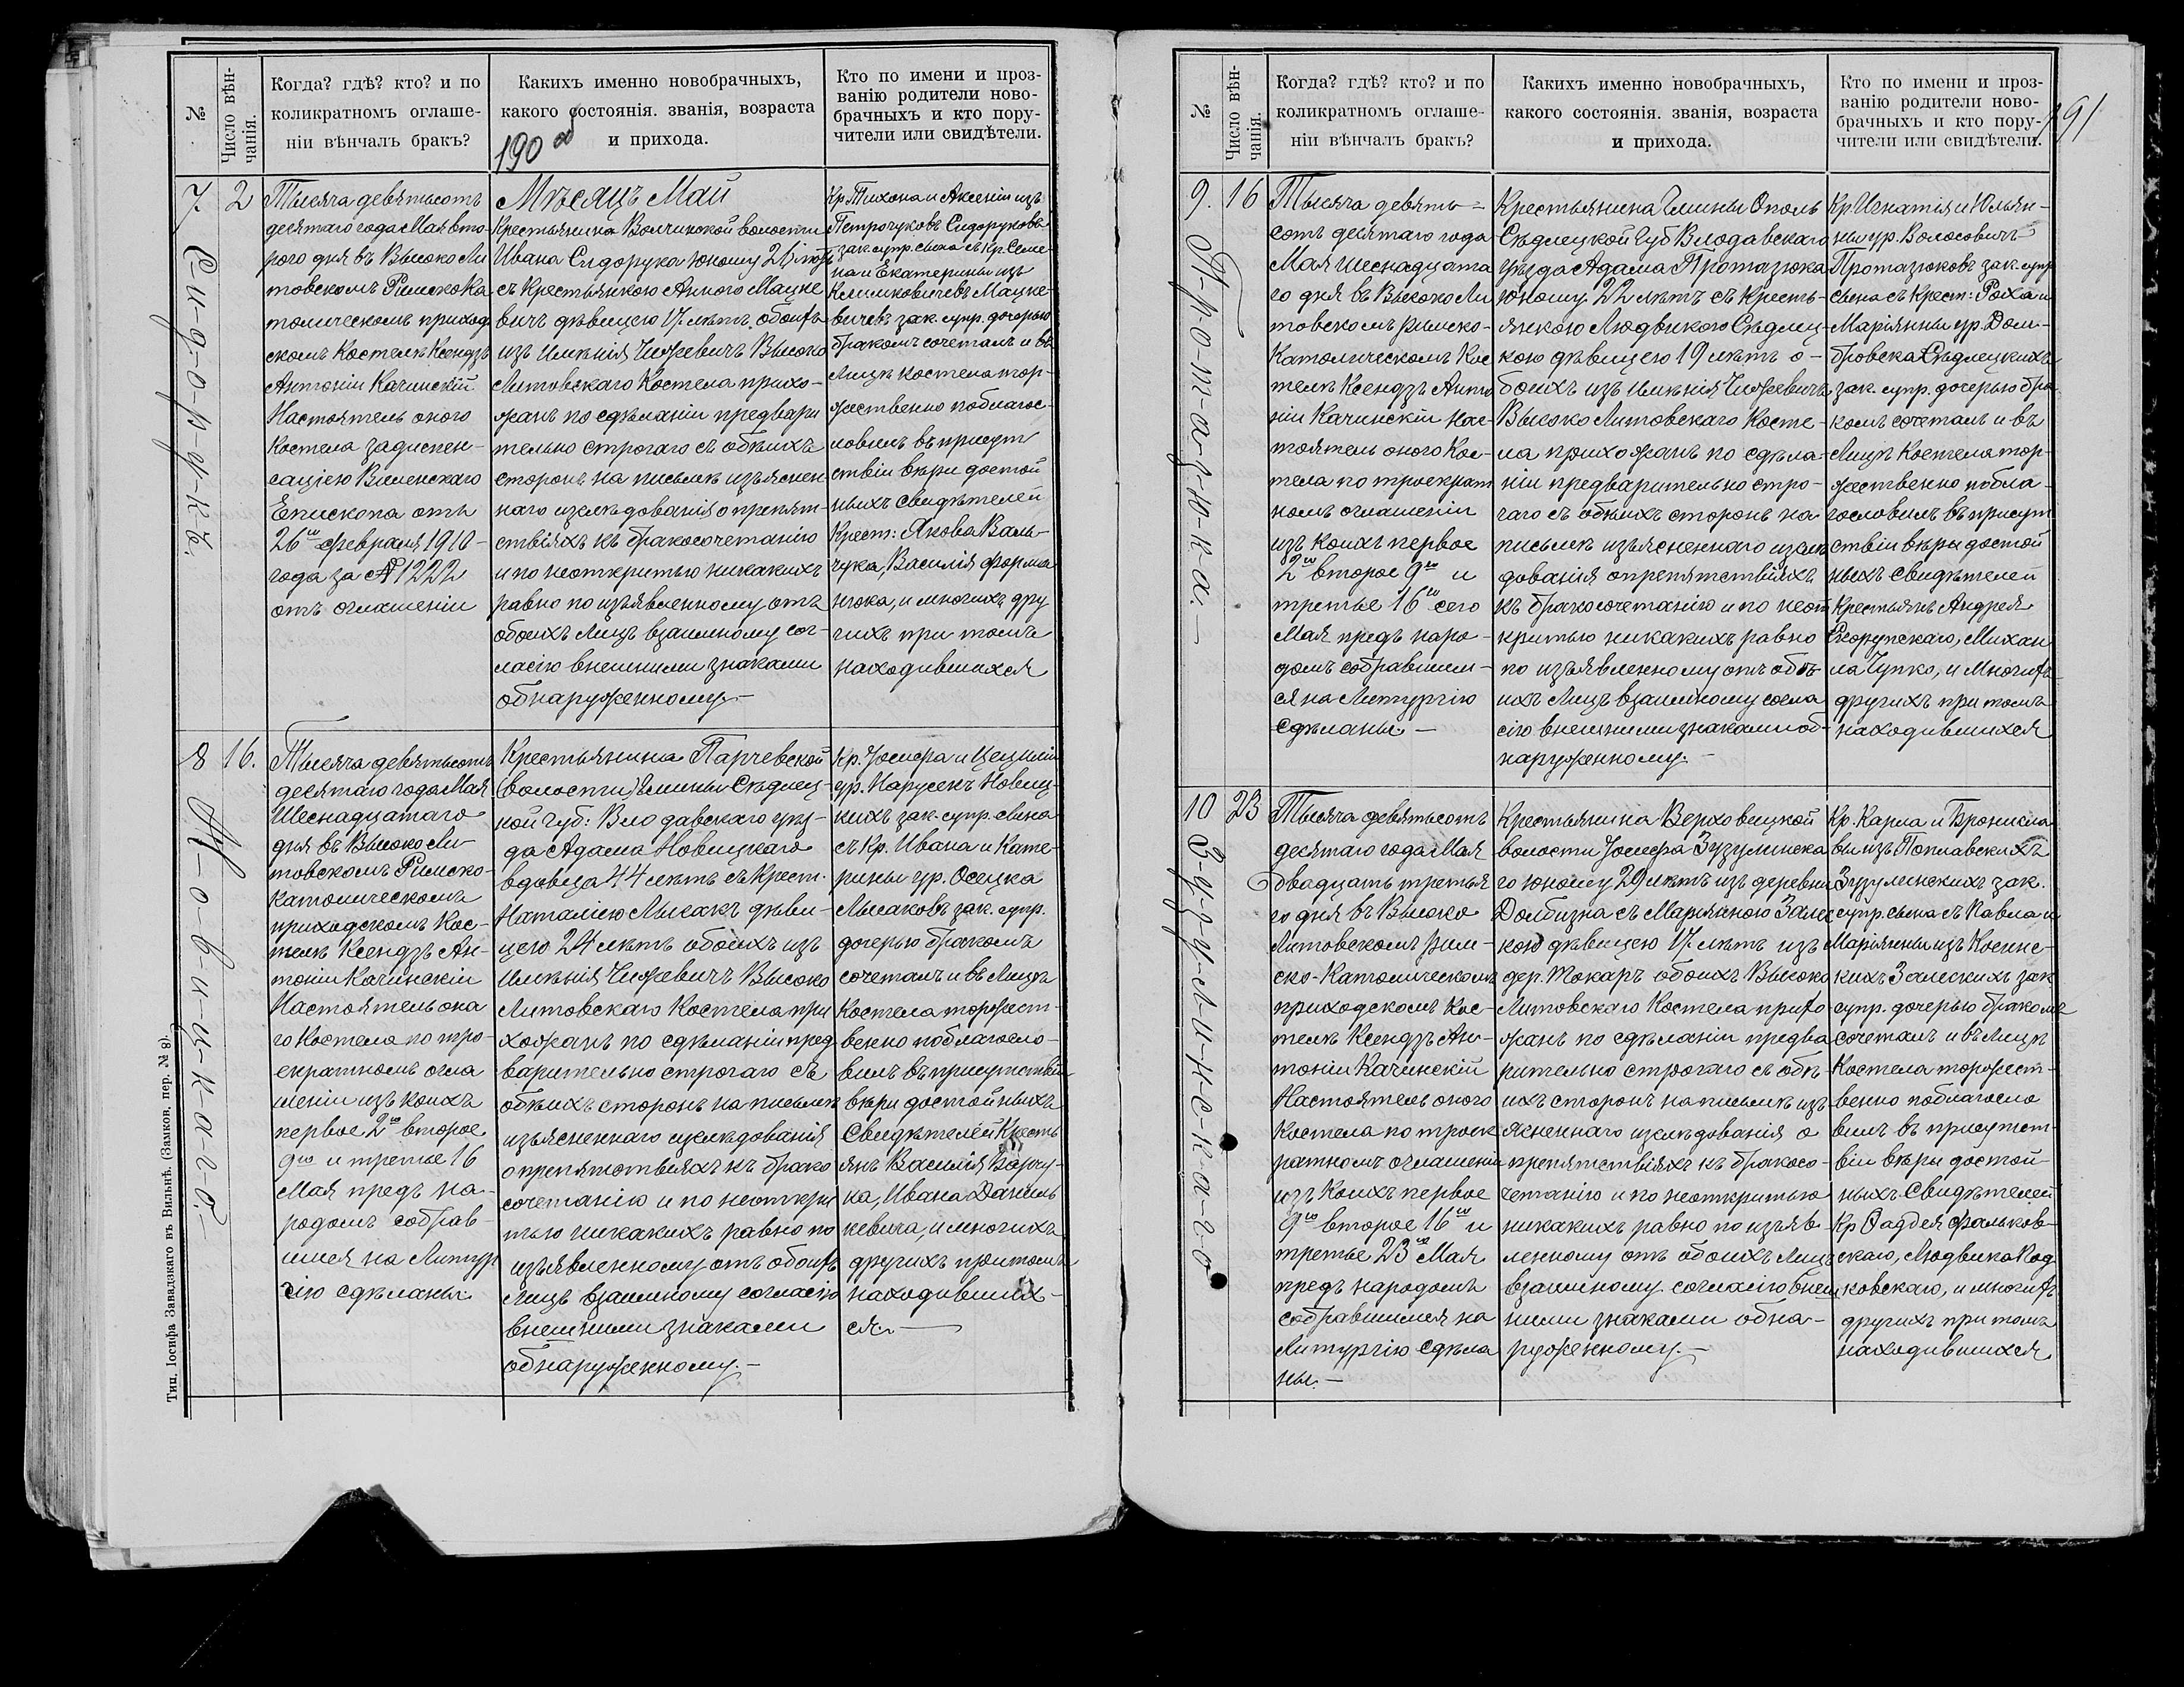 №
Число вѣн-
чанія.
Когда? гдѣ? кто? и по
коликратномъ оглаше-
ніи вѣнчалъ бракъ?
Какихъ именно новобрачныхъ,
какого состоянія. званія, возраста
и прихода.
190
Кто по имени и проз-
ванію родители ново-
брачныхъ и кто пору-
чители или свидѣтели.
7.
С-и-д-о-р-у-к-ъ.
2
Тысяча девятьсотъ
десятаго года Мая вто-
рого дня въ Высоко Ли
товскомъ Римско Ка
толическомъ приход
скомъ Костелѣ Ксендзъ
Антоній Качинскій
Настоятель оного
Костела за диспен-
саціею Виленскаго
Епископа отъ
26го февраля 1910-
года за № 1222
отъ оглашеніи
Мѣсяцъ Май
Крестьянина Волчинской волости
Ивана Сидорука юношу 21 лѣтъ
съ Крестьянкою Анною Мацке
вичъ дѣвицею 17. лѣтъ обоихъ
изъ имѣнія Чижевичъ Высоко
Литовскаго Костела прихо-
жанъ по сдѣланіи предвари
тельно строгаго съ обѣихъ
сторонъ на письмѣ изъяснен
наго изслѣдованія о препят-
ствіяхъ къ бракосочетанію
и по неоткрытью никакихъ
равно по изъявленному отъ
обоихъ лицъ взаимному сог-
ласію внешними знаками
обнаруженному.-
Кр. Тихона и Аксеніи изъ
Петрочуковъ Сидоруковъ
зак. супр. сына съ Кр. Семе-
на и Екатерины изъ
Климковичевъ Мацке-
вичевъ зак. супр. дочерью
бракомъ сочеталъ и въ
лицѣ костела тор-
жественно поблагос-
ловилъ въ присут
ствіи вѣры достой
ныхъ свидѣтелей
Крест: Якова Валь-
чука, Василія Форма
нюка, и многихъ дру
гихъ при томъ
находившихся
8
Н-о-в-и-ц-к-а-г-о.-
16.
Тысяча девятьсотъ
десятаго года Мая
Шеснадцатаго
дня въ Высоко Ли-
товскомъ Римско-
католическомъ
приходскомъ Кос-
телѣ Ксендзъ Ан-
тоній Качинскій
Настоятель она
го Костела по тро-
екратномъ огла
шеніи изъ коихъ
первое 2го второе
9го и третье 16
Мая предъ на-
родомъ собрав-
шися на Литур
гію сдѣланы
Крестьянина Парчевской
(волости) Гмины Сѣдлец-
кой Губ: Влодавскаго уѣз-
да Адама Новицкаго
вдовца 44 лѣтъ съ Крест.
Наталіею Лысакъ дѣви-
цею 24 лѣтъ обоихъ изъ
имѣнія Чижевичъ Высоко
Литовскаго Костела при
хожанъ по сдѣланіи пред
варительно строгаго съ
обѣихъ сторонъ на письмѣ
изъясненнаго изслѣдованія
о препятствіяхъ къ брако
сочетанію и по неоткры
тью никакихъ равно по
изъявленному отъ обоихъ
лицъ взаимному согласію
внешними знаками
обнаруженному.-
Кр. Іосифа и Цециліи
ур. Нарусекъ Новиц-
кихъ зак. супр. сына
съ Кр. Ивана и Кате-
рины ур. Осецка
Лысаковъ зак. супр.
дочерью бракомъ
сочеталъ и въ лицѣ
Костела торжест-
венно поблагосло-
вилъ въ присутствіи
вѣры достойныхъ
свидѣтелей Кресть
янъ Василія Варчу-
ка, Ивана Даниль
кевича, и многихъ
другихъ притомъ
находивших-
ся.-
Тип. Іосифа Завадзкаго въ Вильнѣ. (Замков. пер. № 9).
№
Число вѣн-
чанія.
Когда? гдѣ? кто? и по
коликратномъ оглаше-
ніи вѣнчалъ бракъ?
Какихъ именно новобрачныхъ,
какого состоянія. званія, возраста
и прихода.
Кто по имени и проз-
ванію родители ново-
брачныхъ и кто пору-
чители или свидѣтели.
191
9.
П-р-о-т-а-з-ю-к-а.-
16
Тысяча девять-
сотъ девятаго года
Мая шеснадцата
го дня въ Высоко Ли
товскомъ римско-
Католическомъ Кос
телѣ Ксендзъ Анто
ній Качинскій Нас-
тоятель оного Кос-
тела по троекрат
номъ оглашеніи
изъ коихъ первое
2го второе 9го и
третье 16го сего
Мая предъ наро-
домъ собравшим-
ся на Литургію
сдѣланы.-
Крестьянина Гмины Ополь
Сѣдлецкой Губ Влодавскаго
уѣзда Адама Протазюка
юношу 22 лѣтъ съ Кресть-
янкою Людвикою Сѣдлец-
кою дѣвицею 19 лѣтъ о-
боихъ изъ имѣнія Чижевичъ
Высоко Литовскаго Косте-
ла прихожанъ по сдѣла-
ніи предварительно стро-
гаго съ обѣихъ сторонъ на
письмѣ изъясненнаго изслѣ
дованія о препятствіяхъ
къ бракосочетанію и по неот
крытью никакихъ равно
по изъявленному отъ обѣ-
ихъ лицъ взаимному согла
сію внешними знаками об-
наруженному.-
Кр. Игнатія и Юльян-
ны ур. Волосовичъ
Протазюковъ зак. супр
сына съ Крест: Роха и
Маріянны ур. Дом-
бровска Сѣдлецкихъ
зак. супр. дочерью бра
комъ сочеталъ и въ
лицѣ Костела тор-
жественно побла-
гословилъ въ присут
ствіи вѣры достой
ныхъ свидѣтелей
Крестьянъ Андрея
Скорупскаго, Михаи
ла Чупко, и многихъ
другихъ при томъ
находившихся
10
З-у-з-у-л-и-н-с-к-а-г-о
23
Тысяча девятьсотъ
десятаго года Мая
двадцать третья
го дня въ Высоко
Литовскомъ рим-
ско-Католическомъ
приходскомъ Кос-
телѣ Ксендзъ Ан-
тоній Качинскій
Настоятель оного
Костела по троек
ратномъ оглашеніи
изъ коихъ первое
9го второе 16го и
третье 23го Мая
предъ народомъ
собравшимся на
Литургію сдѣла
ны.-
Крестьянина Верховицкой
волости Іосифа Зузулинска
го юношу 29 лѣтъ изъ деревни
Долбизна съ Маріянною Залес
кою дѣвицею 17. лѣтъ изъ
дер. Токаръ обоихъ Высоко
Литовскаго Костела прихо
жанъ по сдѣланіи предва
рительно строгаго съ обѣ-
ихъ сторонъ на письмѣ изъ
ясненнаго изслѣдованія о
препятствіяхъ къ бракосо-
четанію и по неоткрытью
никакихъ равно по изъяв
ленному отъ обоихъ лицъ
взаимному согласію внеш
ними знаками обна-
руженному.-
Кр. Карла и Бронисла
вы изъ Поплавскихъ
Зузулинскихъ зак.
супр. сына съ Павла и
Маріянны изъ Косинс-
кихъ Залескихъ зак
супр. дочерью бракомъ
сочеталъ и въ лицѣ
Костела торжест-
венно поблагосло
вилъ въ присутст-
віи вѣры достой-
ныхъ свидѣтелей
Кр Фаддея Фальков-
скаго, Людвика Род
ковскаго, и многихъ
другихъ при томъ
находившихся